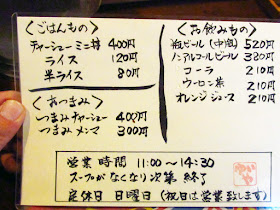 〈ごはんもの〉
チャーシューミニ丼 400円
ライス 120円
半ライス 80円
〈おつまみ〉
つまみチャーシュー 400円
つまみメンマ 300円
〈お飲みもの〉
瓶ビール(中瓶) 520円
ノンアルコールビール 380円
コーラ 210円
ウーロン茶 210円
オレンジジュース 210円
営業時間 11:00～14:30
スープがなくなり次第終了
定休日 日曜日(祝日は営業致します)